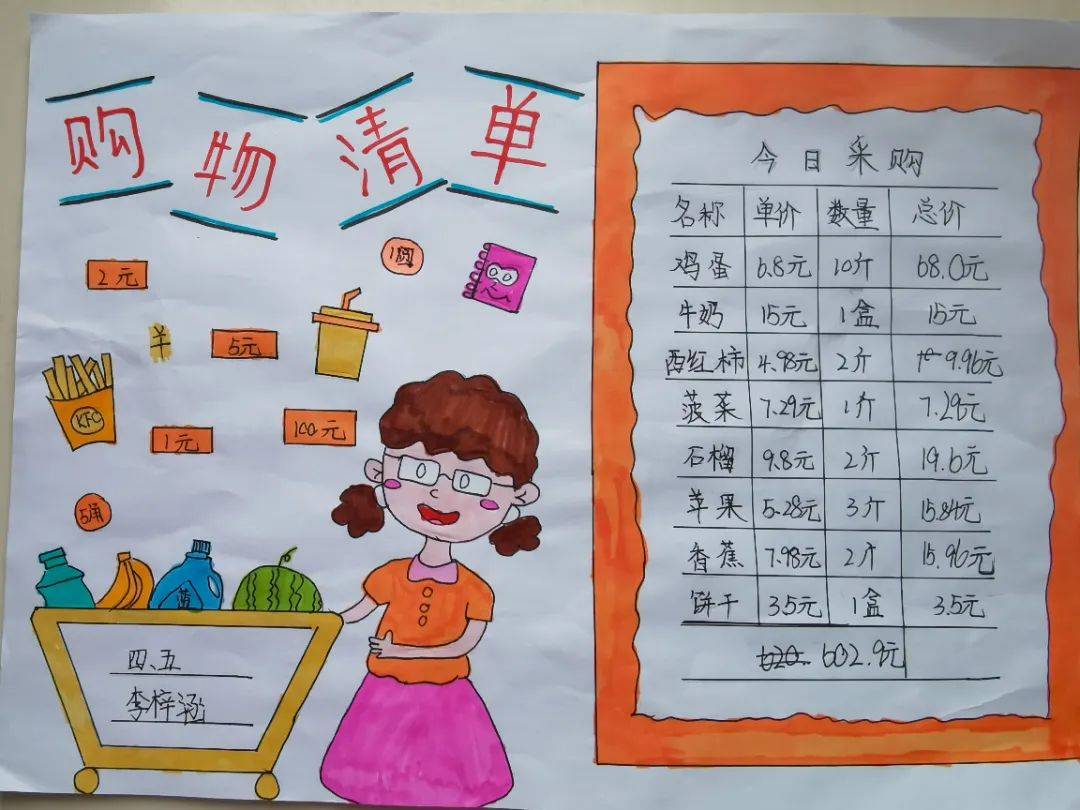 购物清单
1圆
2元
5元
KFC
1元
100元
5角
蓝
四、五
李梓涵
今日采购
名称 单价 数量 总价
鸡蛋 6.8元 10斤 68.0元
牛奶 15元 1盒 15元
西红柿 4.98元 2斤 9.96元
菠菜 7.29元 1斤 7.29元
石榴 9.8元 2斤 19.6元
苹果 5.28元 3斤 15.84元
香蕉 7.98元 2斤 15.96元
饼干 3.5元 1盒 3.5元
602.9元